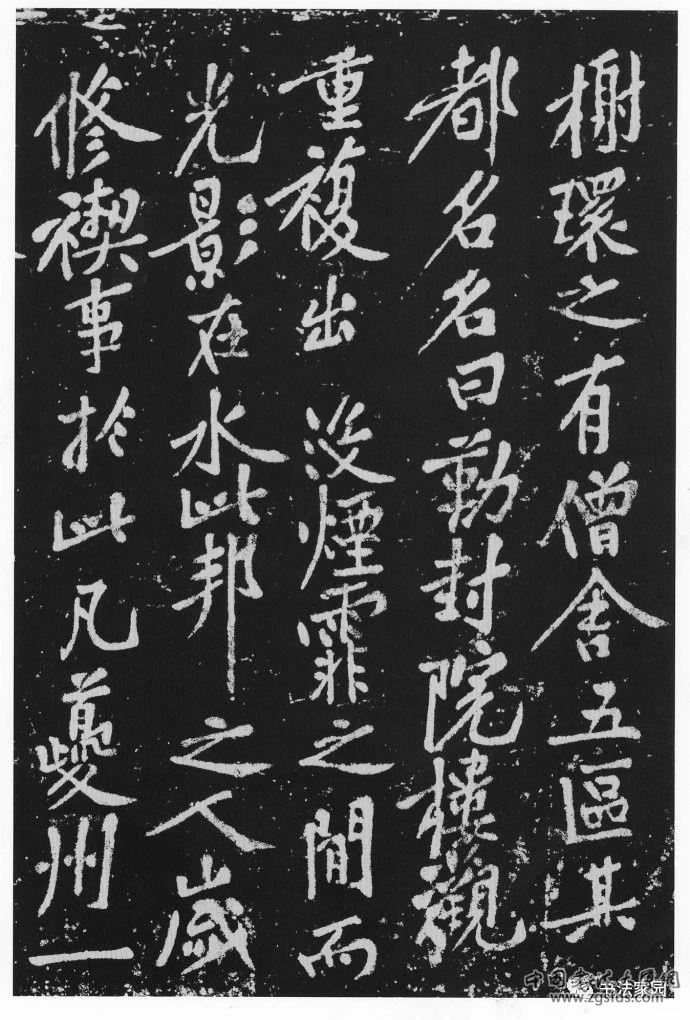 榭環之有僧舍五區其
都名名曰勒封院樓觀
重複出没煙霏之閒而
光影在水此邦之人歲
修禊事於此凡夔州一
书法聚园
www.zgsfds.com